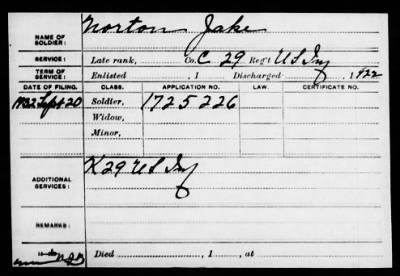 NAME OF SOLDIER: Norton Jake
SERVICE: Late rank, Co. C 29 Reg't US Inf
TERM OF SERVICE: Enlisted , 1 Discharged , 1922
DATE OF FILING. CLASS. APPLICATION NO. LAW. CERTIFICATE NO.
1932 Sept 20 Soldier, 1725226
Widow,
Minor,
ADDITIONAL SERVICES: K 29 US Inf
REMARKS:
Died , 1 , at